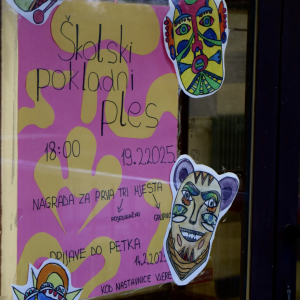 Školski
pokladni
ples
18:00 19.2.2025.
NAGRADA ZA PRVA TRI MJESTA
POJEDINAČNO GRUPNO
PRIJAVE DO PETKA
14.2.2025.
KOD NASTAVNICE